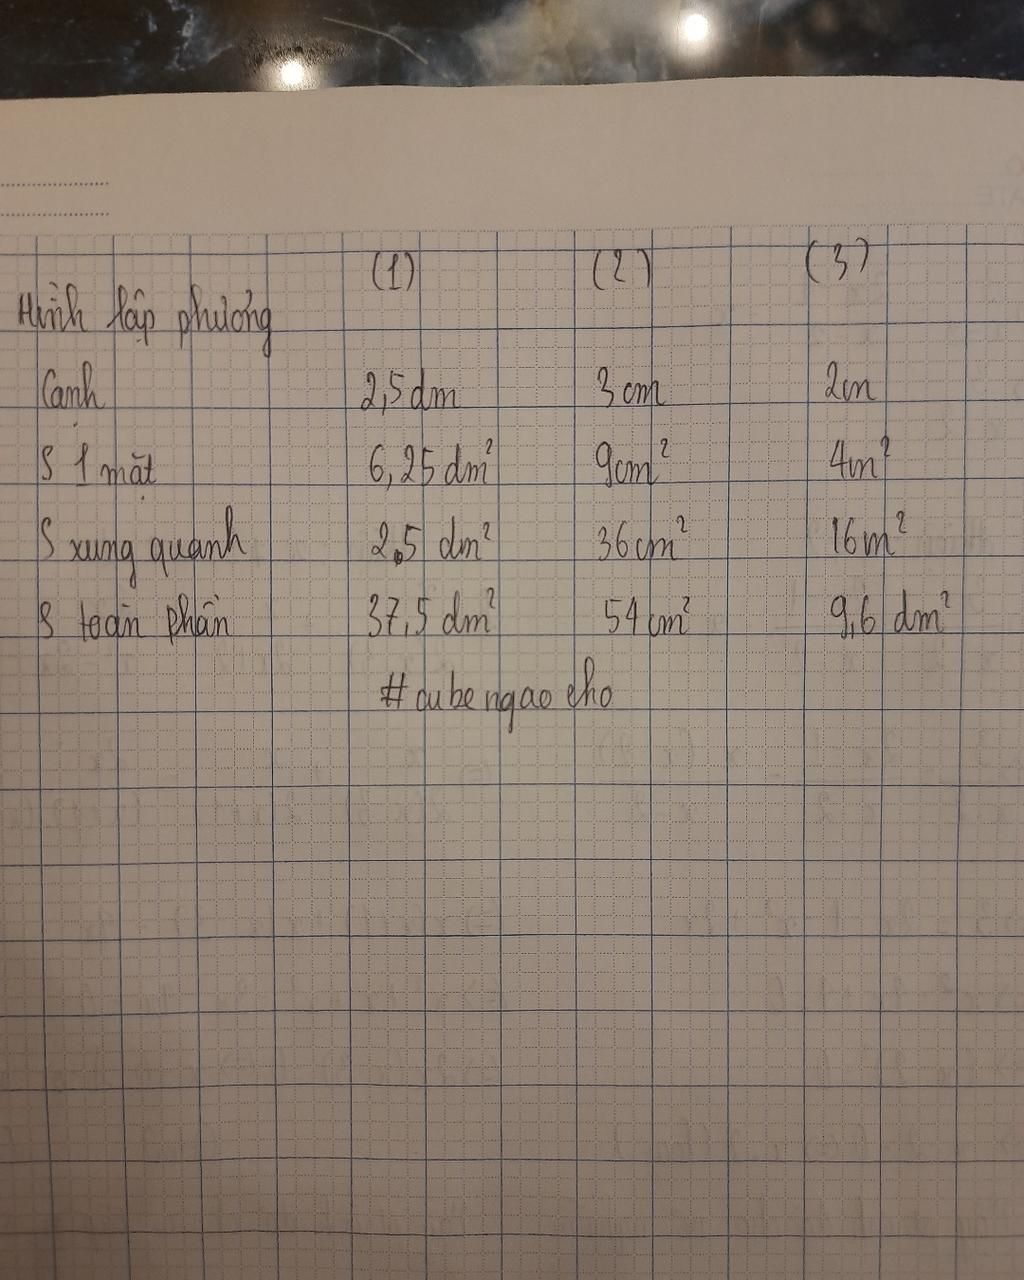 (1) (2) (3)
Hình lập phương
Cạnh 2,5 dm 3 cm 2m
S 1 mặt 6,25 dm² 9cm² 4m²
S xung quanh 2,5 dm² 36cm² 16m²
S toàn phần 37,5 dm² 54cm² 9,6 dm²
#cubengaocho